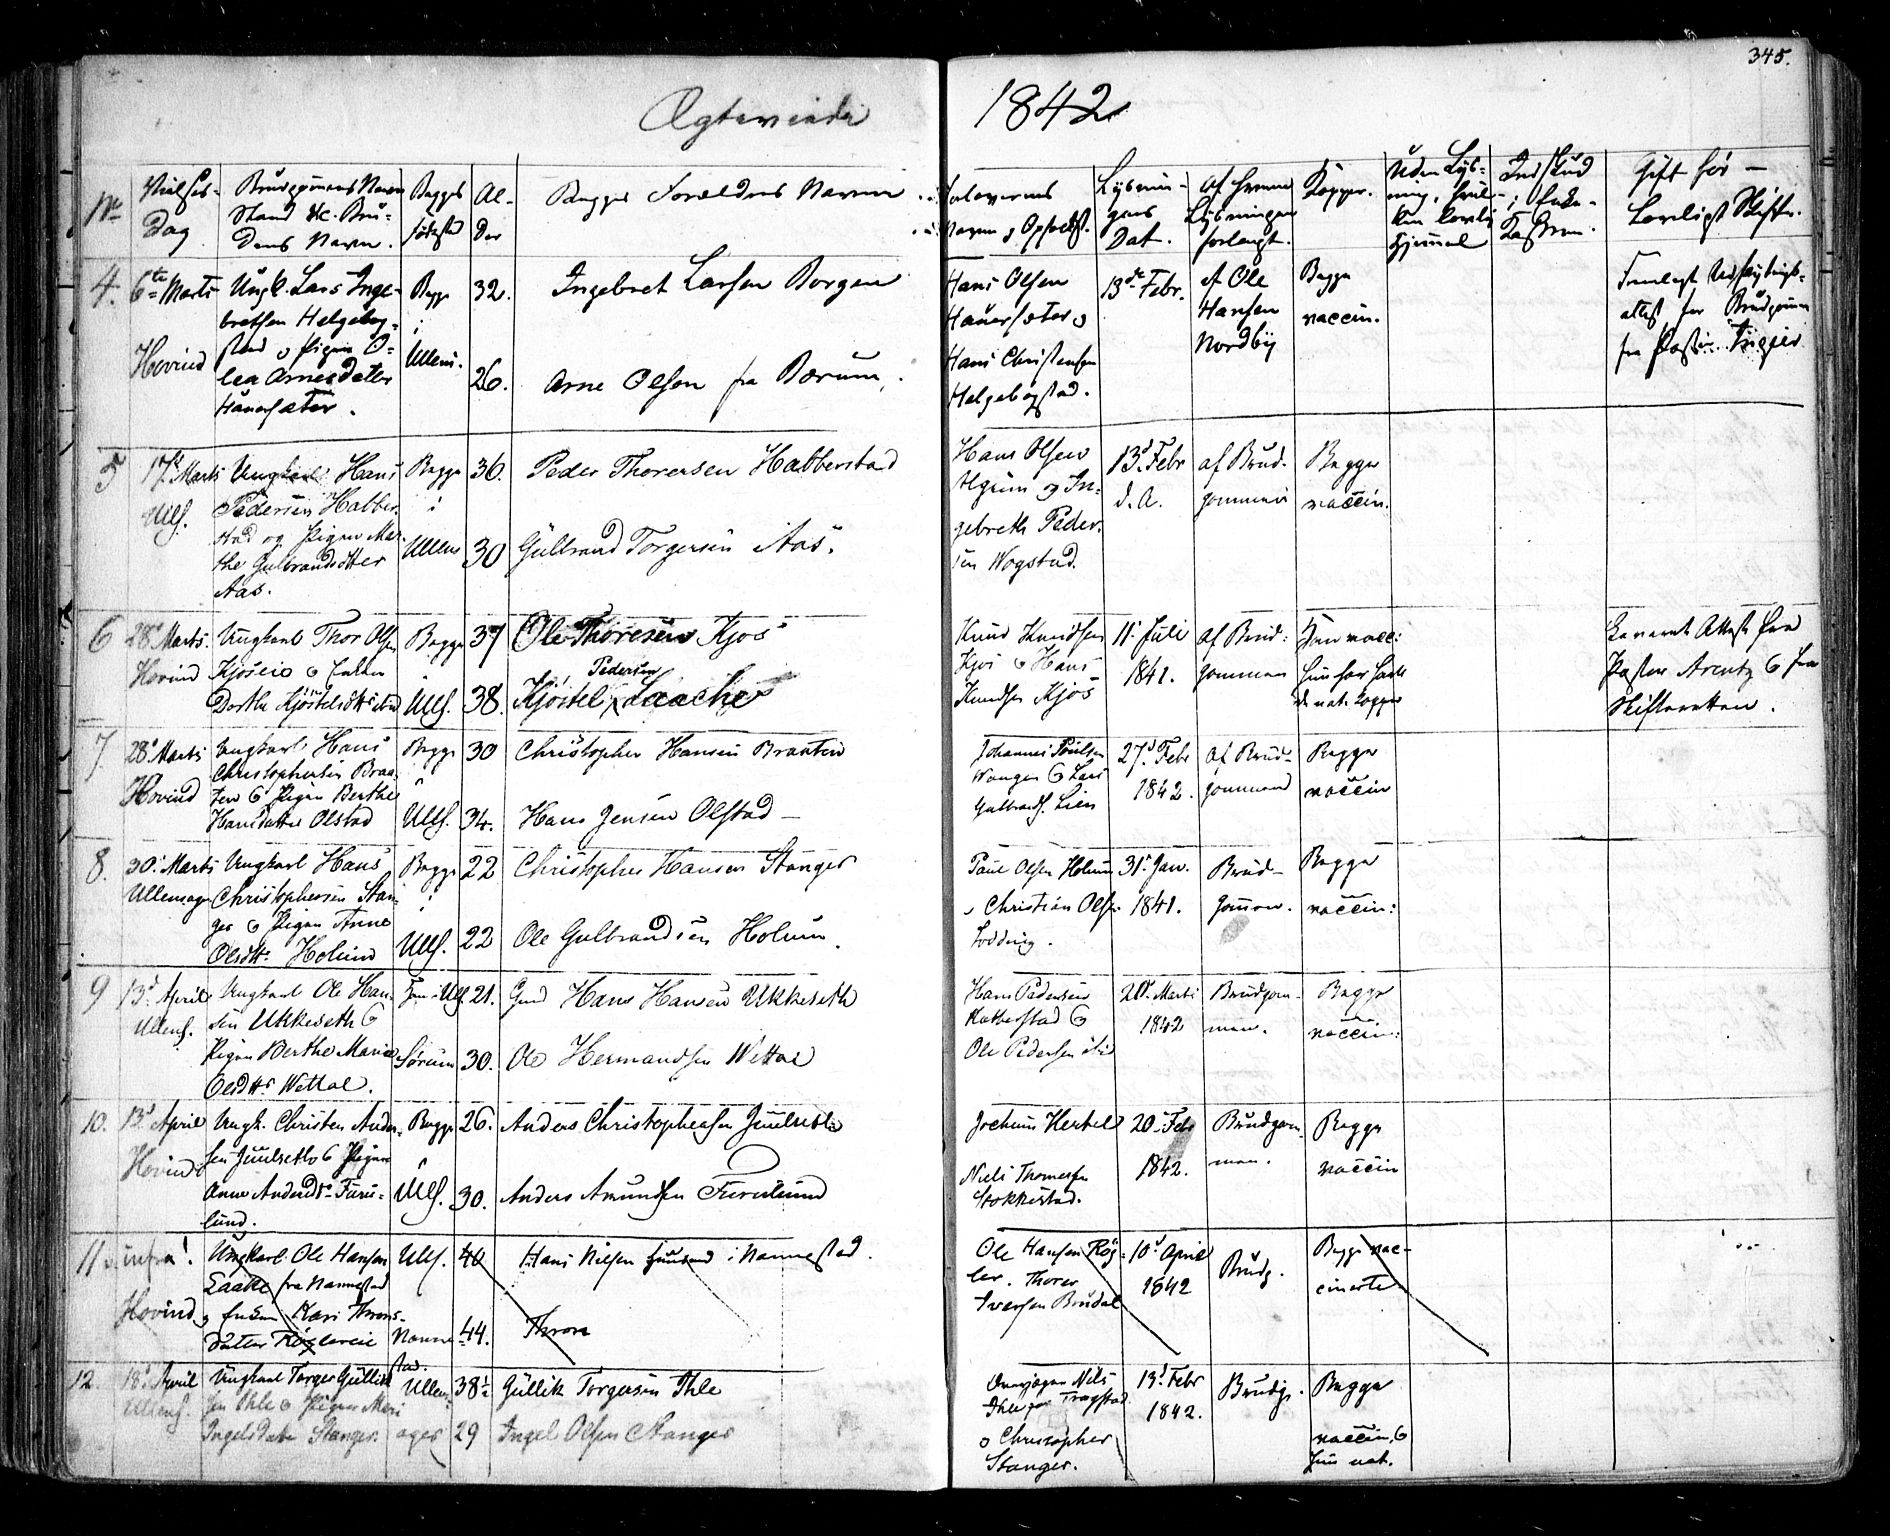 345.
Ægteviede 1842
No
Vielses-
Dag
Brudgommens Navn
Stand &c. Bru-
dens Navn.
Begges
fødested
Al-
der
Begges Forældres Navne
Forlovernes
Navn og Opholdst.
Lysnin-
gens
Dat.
Af hvem
Lysningen
forlangt.
Kopper.
Uden Lys-
ning, hvil-
ken lovlig
Hjemmel
Indskud
i Enke-
Kassen.
Gift før –
Lovligt Skifte.
4. 6te Marts
Hovind
Ungk. Lars Inge-
bretsen Helgebog-
stad og Pigen O-
lea Arnesdatter
Hauersæter.
Begge
i
Ullens.
32.
26.
Ingebret Larsen Borgen
Arne Olsen fra Bærum.
Hans Olsen
Hauersæter og
Hans Christensen
Helgebogstad.
13de Febr.
af Ole
Hansen
Nordby
Begge
vaccin.
Fremlagt
attest for Brudgommen
fra Pastor
5 17de Marts
Ulls.
Ungkarl Hans
Pedersen Habber-
stad og Pigen Mar-
the Gulbrandsdtter
Aas.
Begge
i
Ullens
36.
30
Peder Thoresen Habberstad
Gulbrand Torgersen Aas.
Hans Olsen
Algrim og In-
gebreth Peder-
sen Wogstad.
13de Febr
d. A.
af Brud-
gommen
Begge
vaccin.
6 28de Marts.
Hovind
Ungkarl Thor Olsen
Kjoseie og Enken
Dorthe Kjøstelsdtter
Begge
Ulls.
37
38.
Ole Thoresen Kjos
Pedersen
Kjøstel Laache
Knud Knudsen
Kjos og Hans
Knudsen Kjos
11te Juli
1841.
af Brud-
gommen
Han vacc:
Hun har havt
d. nat. Kopper
Leverede Attest fra
Pastor Arentz og fra
Skifteretten.
7 28de Marts
Hovind
Ungkarl Hans
Christophersen Braa-
ten og Pigen Berthe
Hansdatter Olstad
Begge
Ulls.
30
34.
Christopher Hansen Braaten
Hans Jensen Olstad –
Johannes Poulsen
Wangen og Lars
Gulbrands. Lien
27de Febr
1842.
af Brud-
gommen
Begge
vaccin
8. 30te Marts
Ullensager
Ungkarl Hans
Christophersen Stan-
ger og Pigen Anne
Olsdtr. Holum
Begge
i
Ulls.
22
22
Christopher Hansen Stanger
Ole Gulbrandsen Holum.
Paul Olsen Holum
og Christian Olsen
31te Jan.
1841.
Brud-
gommen.
Begge
vaccin:
9 13de April
Ullens.
Ungkarl Ole Han-
sen Ukkeseth og
Pigen Berthe Marie
Olsdtr Wettal.
Han i Ulls.
Sørum
21.
30.
Gmd Hans Hansen Ukkeseth
Ole Hermandsen Wettal
Hans Pedersen
Ratterstad og
Ole Pedersen
20de Marts
1842
Brudgom-
men.
Begge
vaccin:
10. 13de April
Hovind
Ungk. Christen Ander-
sen Juulseth og Pigen
Anne Andersdtr Furu-
lund.
Begge
Ulls.
26.
30.
Anders Christophersen Juulseth
Anders Amundsen Furulund
Jochum Hertel
Niels Thomesen
Stokkestad.
20de Febr
1842.
Brudgom-
men.
Begge
vaccin
11 v. infra!
Hovind
Ungkarl Ole Hansen
Laake fra Nannestad
og Enken Kari Throns-
datter Røglereie
Ulls.
Nanne-
stad.
40
44.
Hans Nilsen Huusmd i Nannestad.
Thron
Ole Hansen Røg-
ler. Thorer
Iversen Brudal
10de April
1842
Brudg.
Begge vac-
cinerte
12. 18de April
Ullens.
Ungkarl Torger Gullik-
sen Ihle og Pigen Mari
Ingelsdatter Stanger.
Ullens-
ager
38½
29
Gullik Torgersen Ihle
Ingel Olsen Stanger
Nils
Ihle paa Trøgstad
og Christopher
Stanger.
13de Febr
1842.
Brudg.
Begge
vaccin, og
Hun nat.